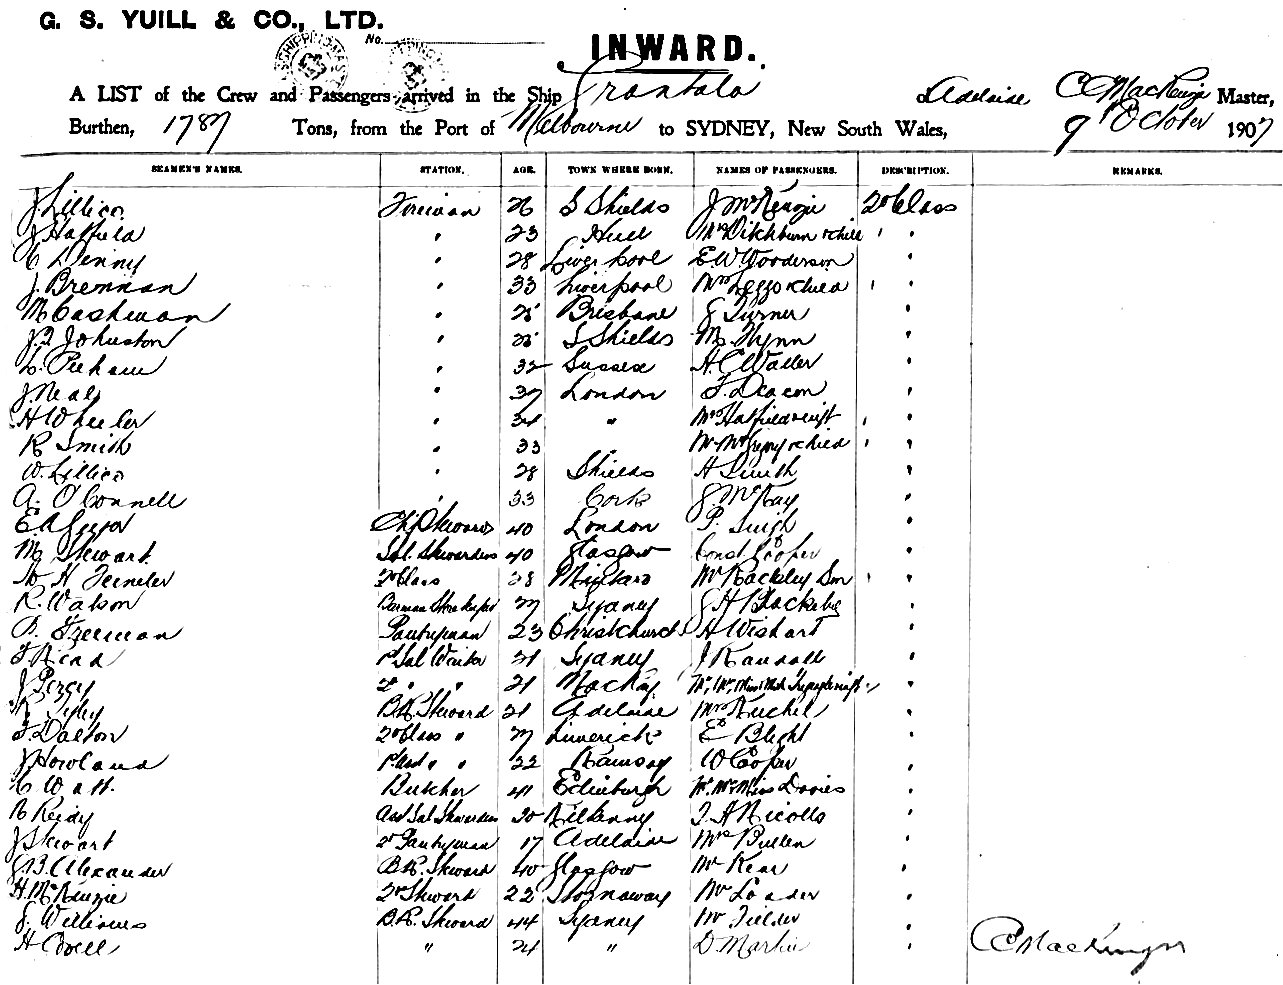 G. S. YUILL & CO., LTD.
No.
INWARD.
A LIST of the Crew and Passengers arrived in the Ship Grantala Adelaide C MacKenzie Master,
Burthen, 1787 Tons, from the Port of Melbourne to SYDNEY, New South Wales, 9 October 1907
SEAMEN'S NAMES. STATION. AGE. TOWN WHERE BORN. NAMES OF PASSENGERS. DESCRIPTION. REMARKS.
J Lillico Fireman 26 S Shields J McKenzie 2nd Class
J Hatfield " 23 Hull Mrs Ditchburn & child " "
C Denny " 28 Liverpool E W Wooderson "
J. Brennan " 33 Liverpool Mrs & child " "
M Cashman " Brisbane J Turner "
J Johnston " S Shields Flynn "
L. Pelham " 32 Sussex H C Waller "
J. Neal " 37 London F. Deacon "
H Wheeler " 34 " Mrs Hatfield " "
R Smith " 33 & child " "
W. Lillico " 28 Shields H Smith "
A. O'Connell " 33 Cork J. McKay "
Chf Steward 40 London P. Singh "
M Stewart Sal. Stewardess 40 Glasgow Const Cooper "
2nd Class 28 Mr Rackeley Son " "
R. Watson Barman Storekeeper 27 Sydney "
B. Freeman Pantryman 23 Christchurch H Wishart "
F Read 1st Sal Waiter 21 Sydney J Randall "
J Percy 2nd " " 21 Mackay "
B.R. Steward 21 Adelaide "
F. Dalton 2nd Class " 27 Limerick E Blight "
J Howland " " 22 Ramsay W Cooper "
C Watt. Butcher 41 Edinburgh Mr Mrs Miss Davies "
B Reidy Stewardess 30 Kilkenny J. A Nicolls "
J Stewart 2nd Pantryman 17 Adelaide Mrs Bullen "
J. B. Alexander B.R. Steward 40 Glasgow Mr Kear "
H. McKenzie 2nd Steward 22 Stornaway Mr Loader "
J. Williams B.R. Steward 44 Sydney Mr Fielder "
H Coell " 24 " D. Martin " C MacKenzie